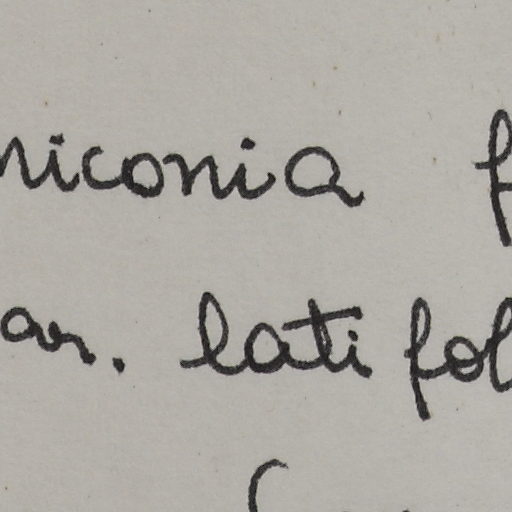 niconia f
ar. lati fol